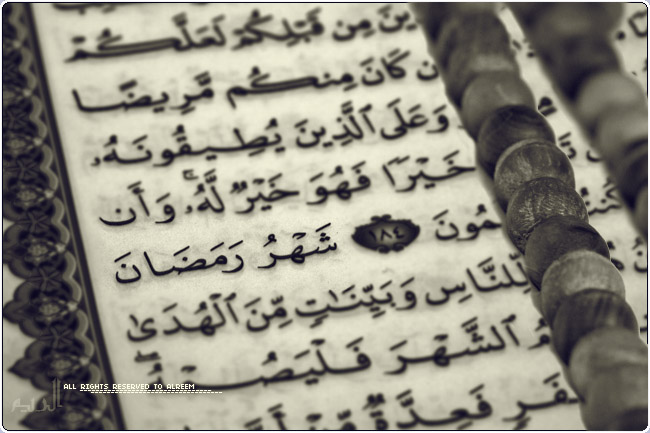 مِن قَبْلِكُمْ لَعَلَّكُمْ
كَانَ مِنكُم مَّرِيضًا
وَعَلَى ٱلَّذِينَ يُطِيقُونَهُۥ
خَيْرًا فَهُوَ خَيْرٌ لَّهُۥ ۚ وَأَن
١٨٤ شَهْرُ رَمَضَانَ
لِّلنَّاسِ وَبَيِّنَٰتٍ مِّنَ ٱلْهُدَىٰ
ٱلشَّهْرَ فَلْيَصُمْهُ ۖ
فَعِدَّةٌ مِّنْ
ALL RIGHTS RESERVED TO ALREEM